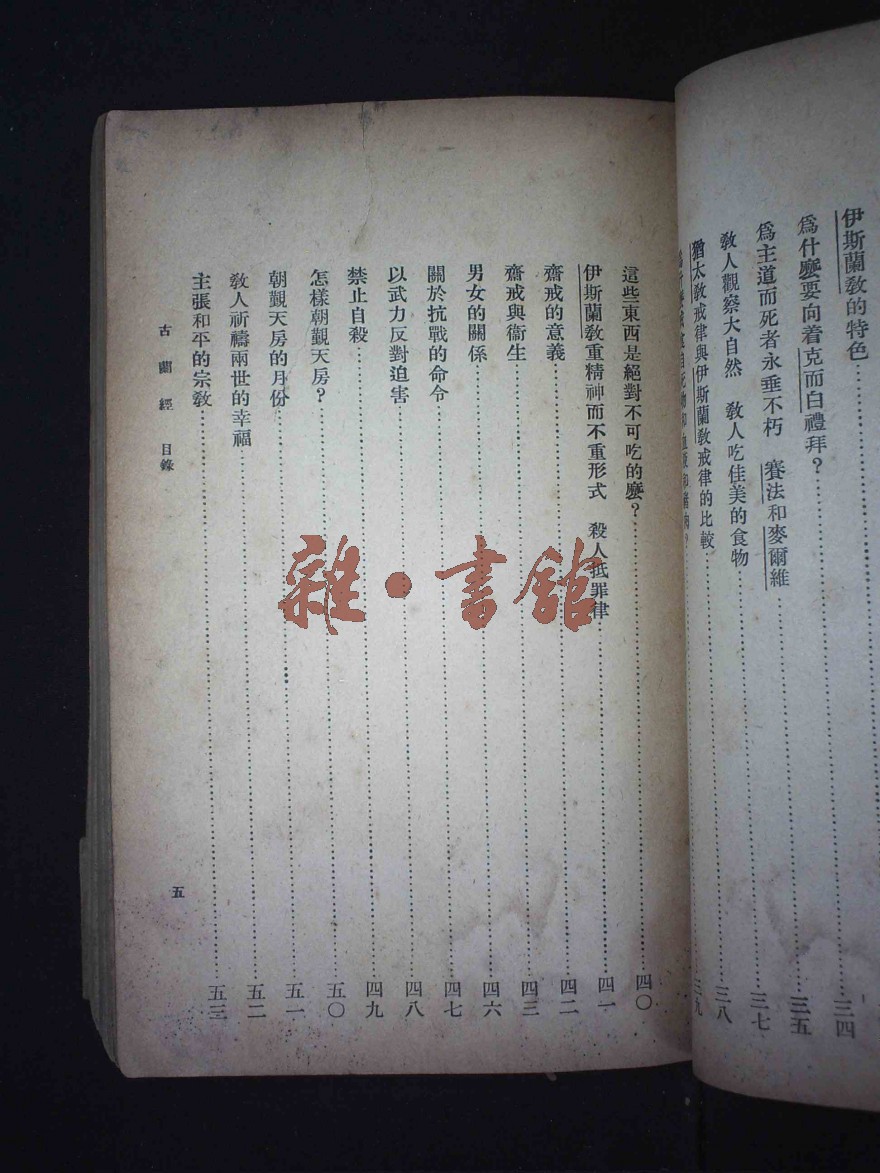 伊斯蘭教的特色……三四
爲什麼要向着克而白禮拜？……三五
爲主道而死者永垂不朽　賽法和麥爾維……三七
教人觀察大自然　教人吃佳美的食物……三八
猶太教戒律與伊斯蘭教戒律的比較……三九
這些東西是絕對不可吃的麼？……四〇
伊斯蘭教重精神而不重形式　殺人抵罪律……四一
齋戒的意義……四二
齋戒與衞生……四三
男女的關係……四六
關於抗戰的命令……四七
以武力反對迫害……四八
禁止自殺……四九
怎樣朝觀天房？……五〇
朝觀天房的月份……五一
教人祈禱兩世的幸福……五二
主張和平的宗教……五三
古蘭經　目錄
五
雜·書館